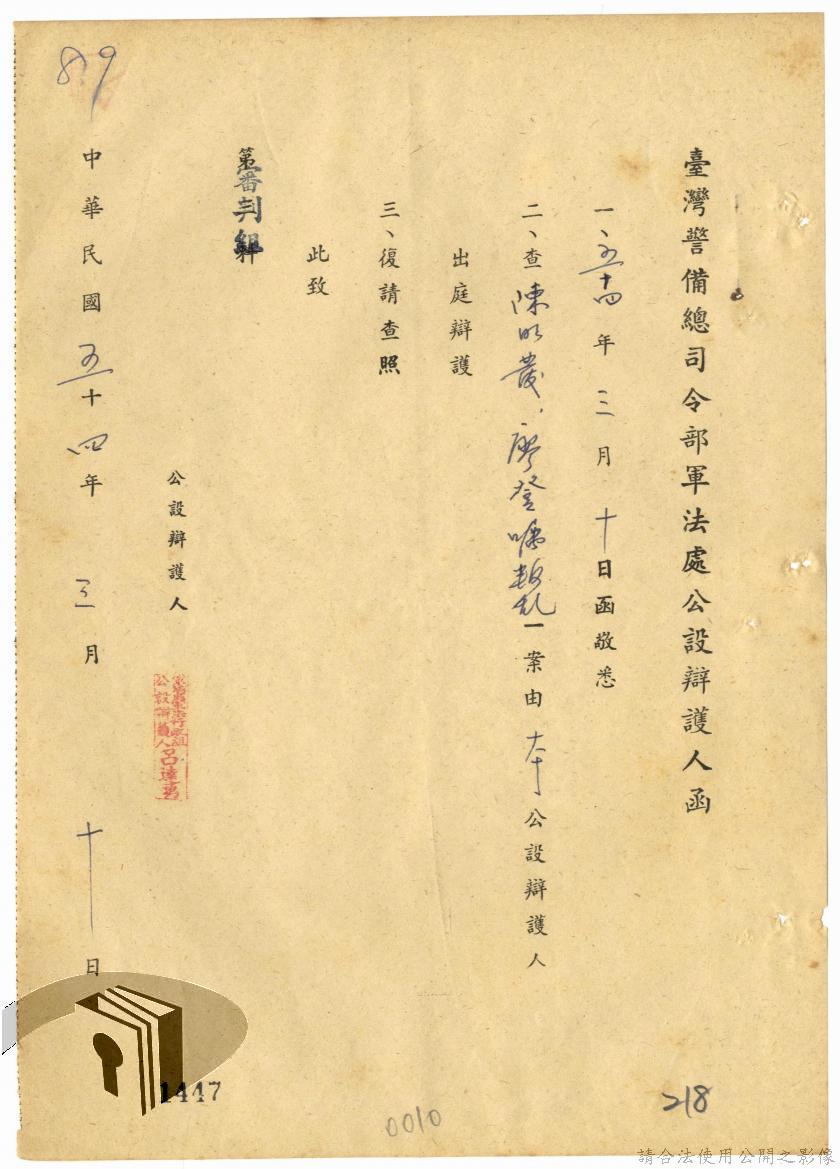 臺灣警備總司令部軍法處公設辯護人函
一、五十四年三月十日函敬悉
二、查陳明發、廖登囑叛乱一案由本公設辯護人
出庭辯護
三、復請查照
此致
審判組
公設辯護人
公設辯護人
中華民國五十四年三月十日
819
1447
0010
218
請合法使用公開之影像